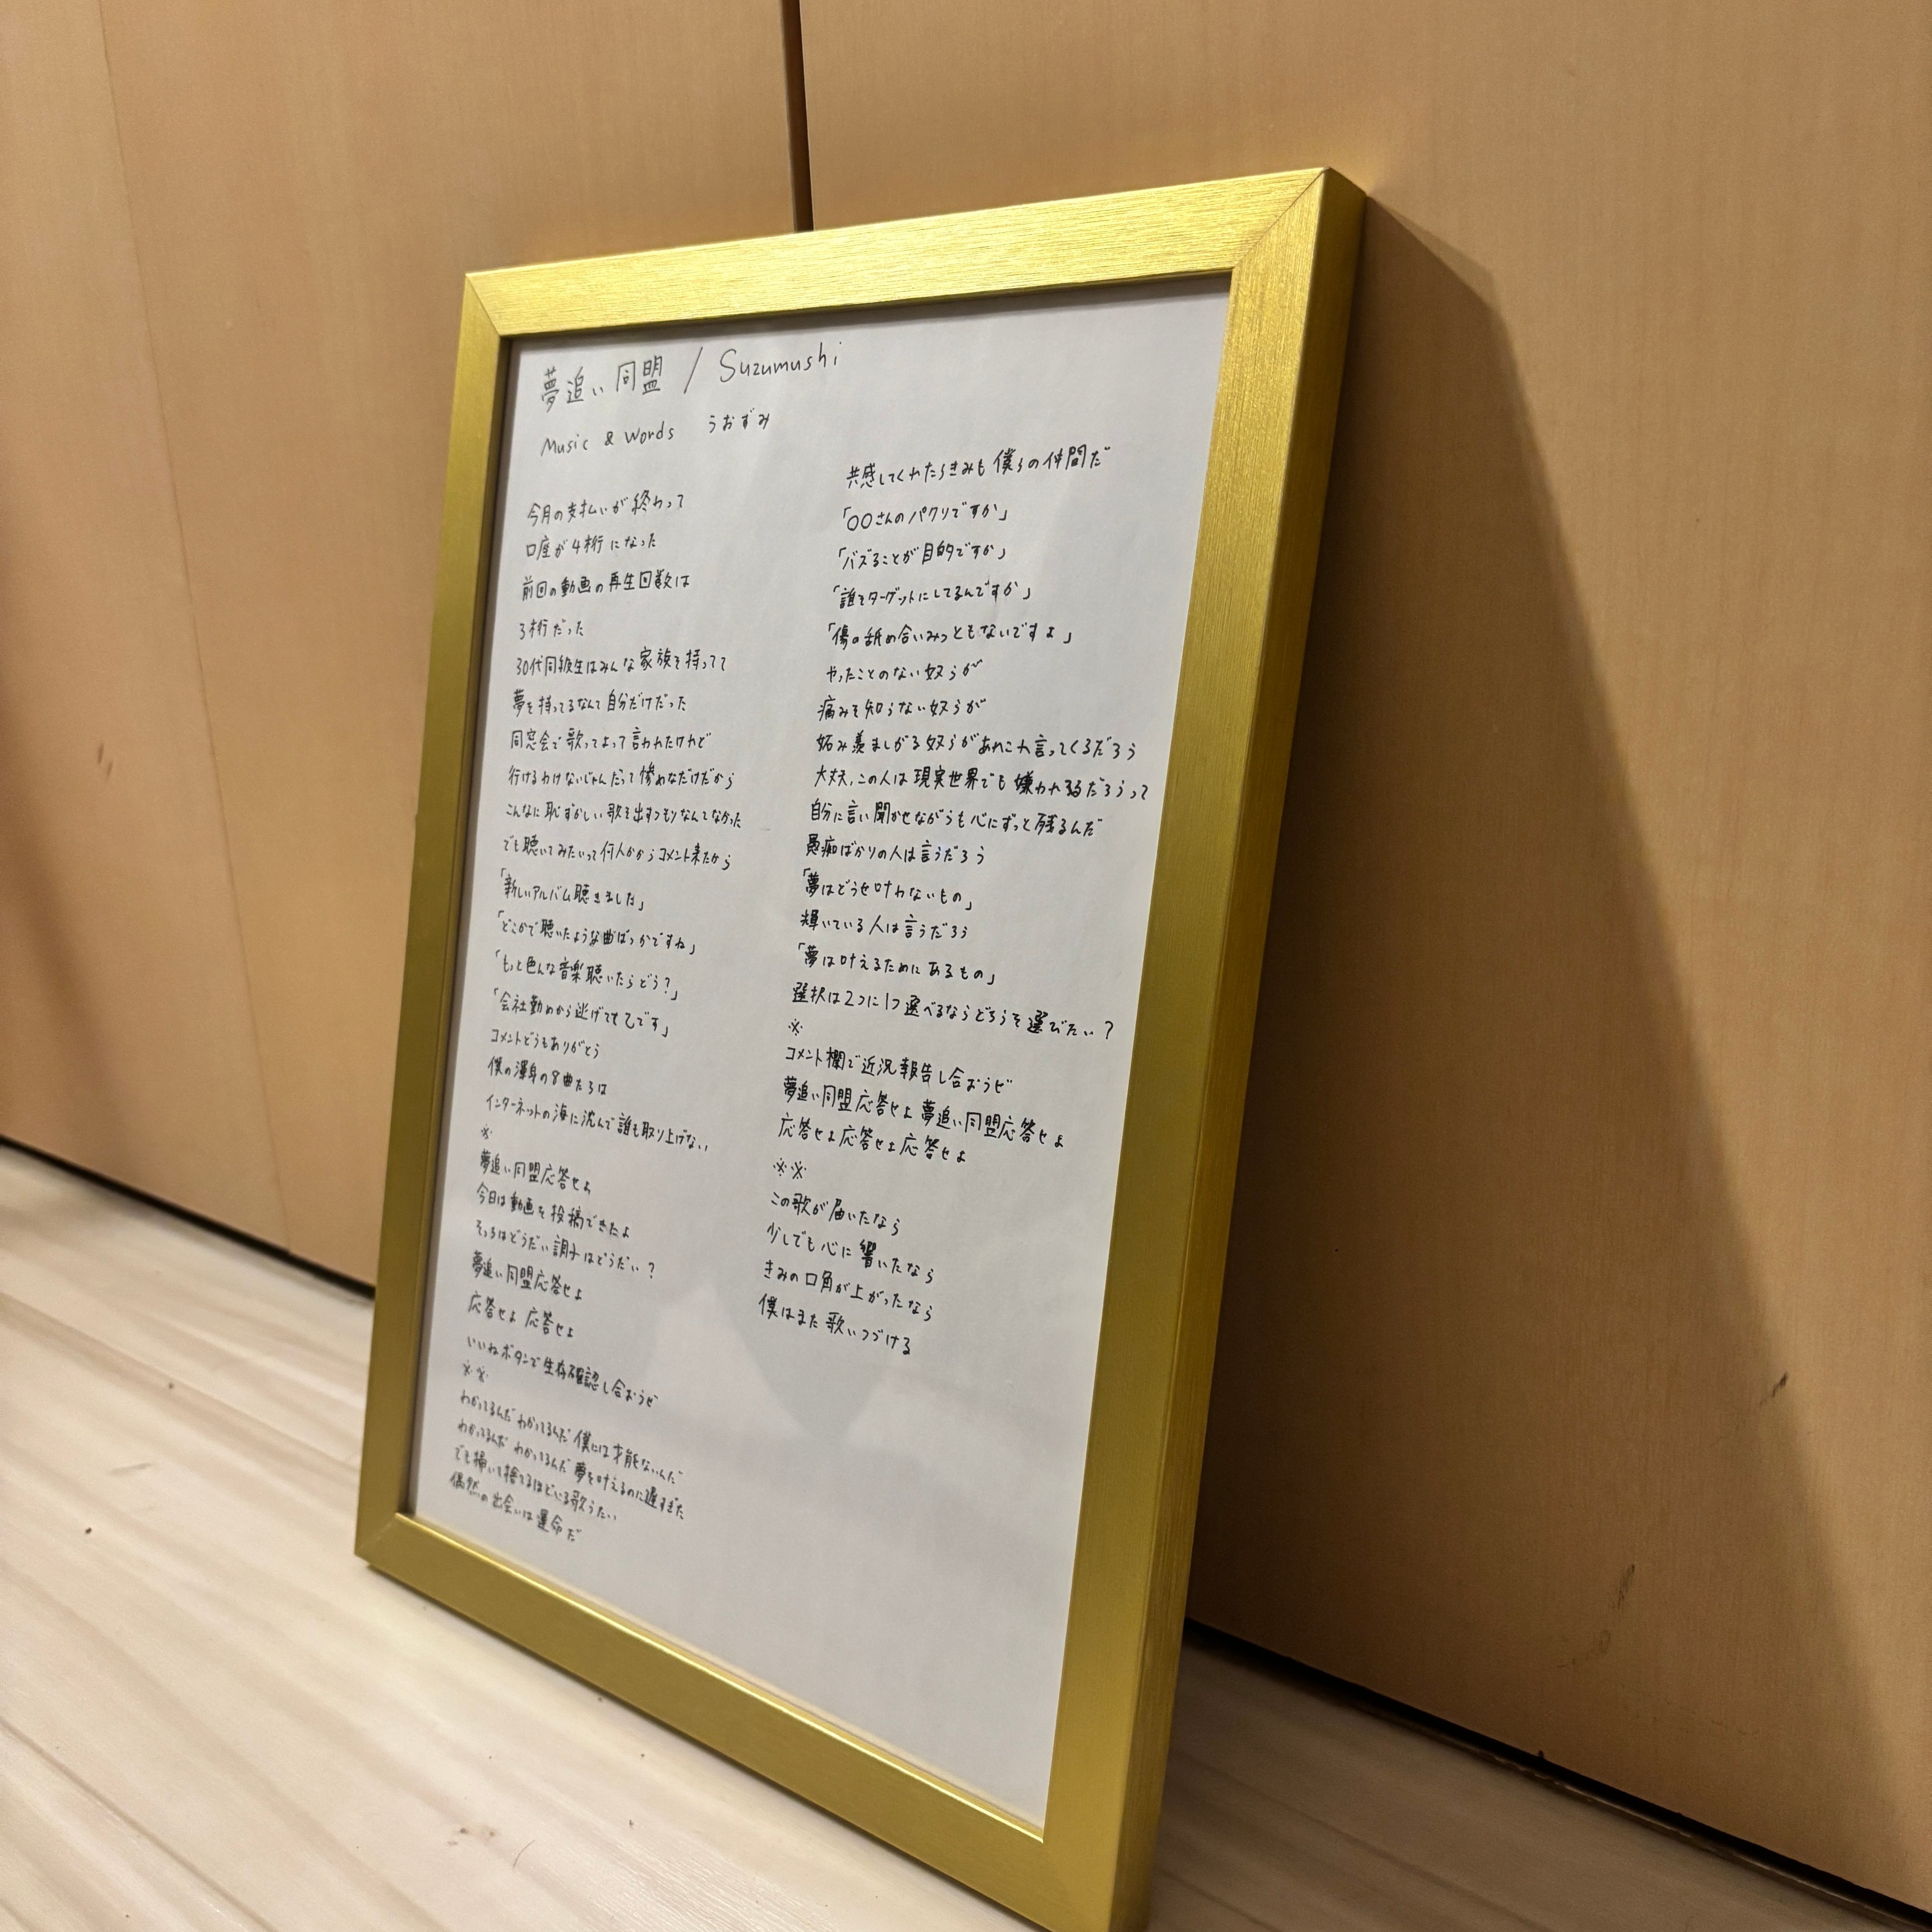 夢追い同盟 / Suzumushi
Music & Words うおずみ
今月の支払いが終わって
口座が4桁になった
前回の動画の再生回数は
3桁だった
30代同級生はみんな家族を持ってて
夢を持ってるなんて自分だけだった
同窓会で歌ってよって言われたけれど
行けるわけないじゃんだって惨めなだけだから
こんなに恥ずかしい歌を出すつもりなんてなかった
でも聴いてみたいって何人かからコメント来たから
「新しいアルバム聴きました」
「どこかで聴いたような曲ばっかですね」
「もっと色んな音楽聴いたらどう?」
「会社勤めから逃げてて乙です」
コメントどうもありがとう
僕の渾身の8曲たちは
インターネットの海に沈んで誰も取り上げない
※
夢追い同盟応答せよ
今日は動画を投稿できたよ
そっちはどうだい調子はどうだい?
夢追い同盟応答せよ
応答せよ 応答せよ
いいねボタンで生存確認し合おうぜ
※※
わかってるんだ わかってるんだ 僕には才能ないんだ
わかってるんだ わかってるんだ 夢を叶えるのに遅すぎた
でも掃いて捨てるほどいる歌うたい
偶然の出会いは運命だ
共感してくれたらきみも僕らの仲間だ
「〇〇さんのパクリですか」
「バズることが目的ですか」
「誰をターゲットにしてるんですか」
「傷の舐め合いみっともないですよ」
やったことのない奴らが
痛みを知らない奴らが
妬み羨ましがる奴らがあれこれ言ってくるだろう
大丈夫、この人は現実世界でも嫌われてるだろうって
自分に言い聞かせながらも心にずっと残るんだ
愚痴ばかりの人は言うだろう
「夢はどうせ叶わないもの」
輝いている人は言うだろう
「夢は叶えるためにあるもの」
選択は2つに1つ選べるならどちらを選びたい?
※
コメント欄で近況報告し合おうぜ
夢追い同盟応答せよ 夢追い同盟応答せよ
応答せよ応答せよ応答せよ
※※
この歌が届いたなら
少しでも心に響いたなら
きみの口角が上がったなら
僕はまた歌いつづける